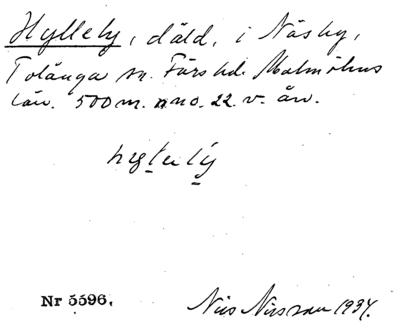 Hylleby, däld, i Näsby,
Tolånga sn. Färs hd. Malmöhus
län. 500 m. nno. 22. v. ån.
Nr 5596.
Nils Nilsson 1934.